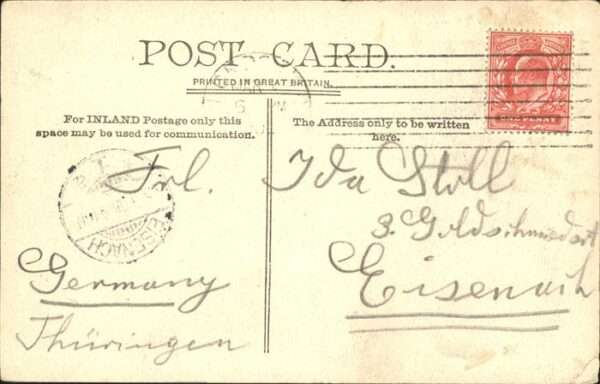 POST CARD.
PRINTED IN GREAT BRITAIN.
For INLAND Postage only this
space may be used for communication.
The Address only to be written
here.
ONE PENNY
EISENACH
Frl. Ida Stoll
3. Goldschmiedst
Germany
Eisenach
Thüringen